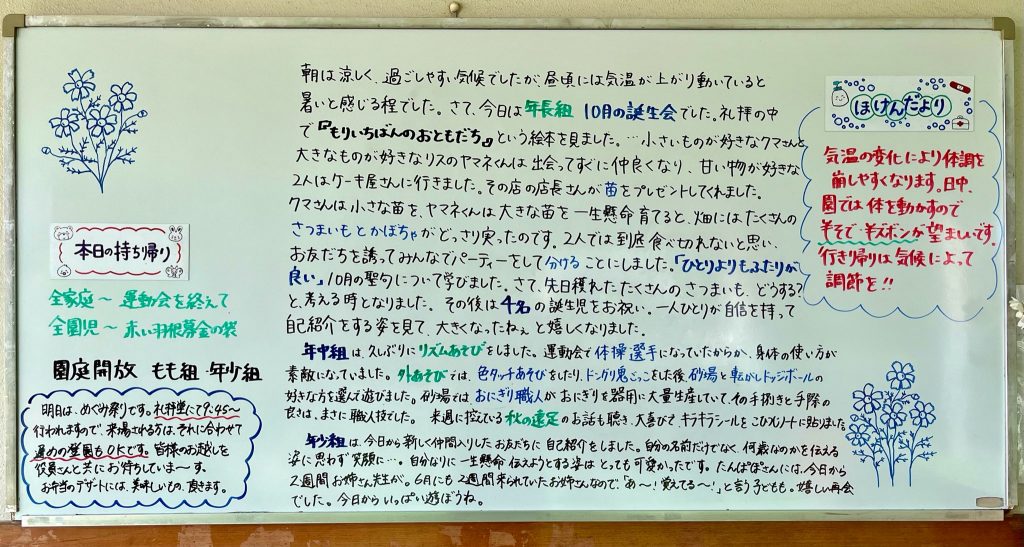 本日の持ち帰り
全家庭～ 運動会を終えて
全園児～ 赤い羽根募金の袋
園庭開放 もも組・年少組
明日は、めぐみ祭りです。礼拝堂にて9:45～
行われますので、来場される方は、それに合わせて
遅めの登園もOKです。皆様のお越しを
役員さんと共にお待ちしていま～す。
お弁当のデザートには、美味しいもの、頂きます。
朝は涼しく、過ごしやすい気候でしたが、昼頃には気温が上がり動いていると
暑いと感じる程でした。さて、今日は年長組 10月の誕生会でした。礼拝の中
で『もりいちばんのおともだち』という絵本を見ました。…小さいものが好きなクマさんと
大きなものが好きなリスのヤマネくんは出会ってすぐに仲良くなり、甘い物が好きな
2人はケーキ屋さんに行きました。その店の店長さんが苗をプレゼントしてくれました。
クマさんは小さな苗を、ヤマネくんは大きな苗を一生懸命育てると、畑にはたくさんの
さつまいもとかぼちゃがどっさり実ったのです。2人では到底食べ切れないと思い、
お友だちを誘ってみんなでパーティーをして分けることにしました。「ひとりよりもふたりが
良い」10月の聖句について学びました。さて、先日穫れたたくさんのさつまいも、どうする?
と、考える時となりました。その後は4名の誕生児をお祝い。一人ひとりが自信を持って
自己紹介をする姿を見て、大きくなったねぇと嬉しくなりました。
年中組は、久しぶりにリズムあそびをしました。運動会で体操選手になっていたからか、身体の使い方が
素敵になっていました。外あそびでは、色タッチあそびをしたり、ドングリ鬼ごっこをした後、砂場と転がしドッジボールの
好きな方を選んで遊びました。砂場では、おにぎり職人がおにぎりを器用に大量生産していて、その手捌きと手際の
良さは、まさに職人技でした。 来週に控えている秋の遠足のお話も聴き、大喜びで キラキラシールをこひつじノートに貼りました。
年少組は、今日から新しく仲間入りしたお友だちに自己紹介をしました。自分の名前だけでなく、何歳なのかを伝える
姿に思わず笑顔に…。自分なりに一生懸命伝えようとする姿はとっても可愛かったです。たんぽぽさんには、今日から
2週間お姉さん先生が。6月にも2週間来られていたお姉さんなので、「あ～!覚えてる～!」と言う子どもも。嬉しい再会
でした。今日からいっぱい遊ぼうね。
ほけんだより
気温の変化により体調を
崩しやすくなります。日中、
園では体を動かすので
半そで・半ズボンが望ましいです。
行き帰りは気候によって
調節を!!